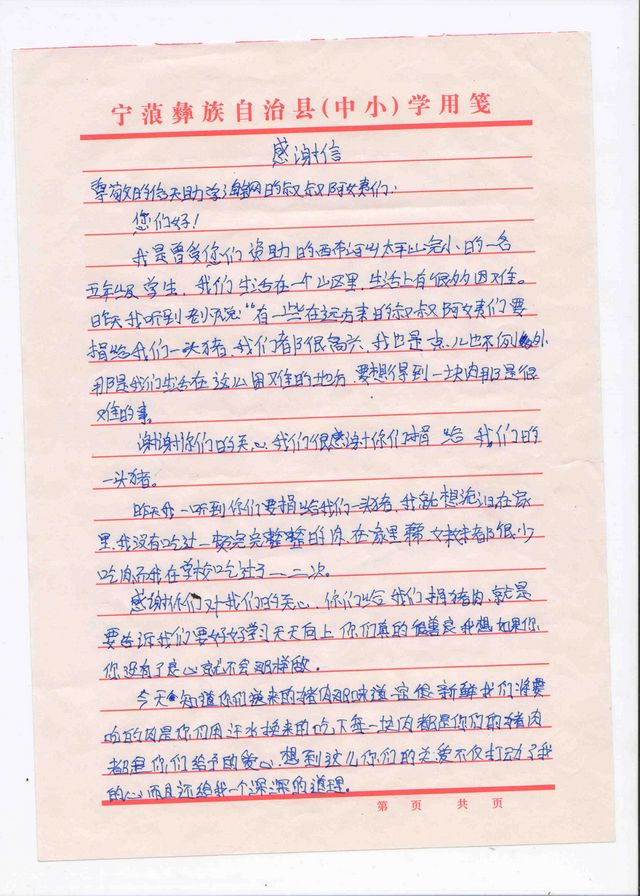 宁蒗彝族自治县(中小)学用笺
感谢信
尊敬的信天助学海钢的叔叔阿姨们:
您们好!
我是曾受你们资助的西布河乡太平山完小的一名
五年级学生,我们生活在一个山区里,生活上有很多困难。
昨天我听到老师说"有一些在远方来的叔叔阿姨们要
捐给我们一头猪,我们都很高兴,我也是点儿也不例外
那是我们生活在这么困难的地方,要想得到一块肉那是很
难的事。
谢谢你们的关心,我们很感谢你们捐给我们的
一头猪。
昨天我一听到你们要捐给我们一头猪,我就想 在家
里,我没有吃过一 完完整整的肉,在家里 妹妹都很少
吃肉而我在学校吃过了一、二次。
感谢你们对我们的关心,你们给我们捐猪肉,就是
要告诉我们要好好学习天天向上,你们真的很善良我想如果你
你没有了良心就不会那样做。
今天 知道你们送来的猪肉那味道一定很新鲜我们将要
吃的肉是你们用汗水换来的吃下每一块肉都是你们的猪肉
都是你们给予的爱心,想到这儿你们的关爱不仅打动了我
的心而且还给我一个深深的道理。
第 页 共 页